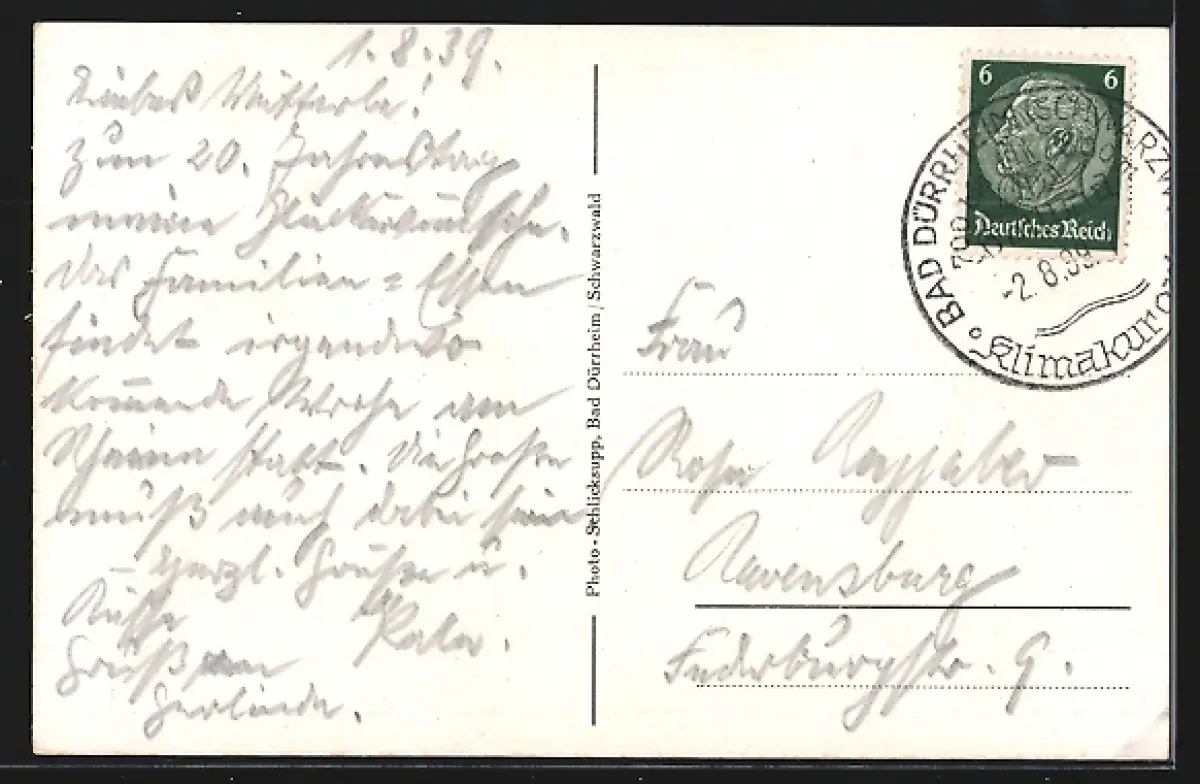 1.8.39.
Liebes Mutterle!
Zum 20. Jahrestag
meine Glückwünsche.
Das Familien = Essen
findet irgendwo
kommende Woche am
Rhein statt. Die
muß auch dabei sein
– Herzl. Grüße u.
Küsse
Gruß an
Gerlinde.
Photo-Schlicksupp, Bad Dürrheim / Schwarzwald
6 6
Deutsches Reich
BAD DÜRRHEIM SCHWARZW
-2.8.39
Klimakuror
Frau
Rosa
Ravensburg
9.